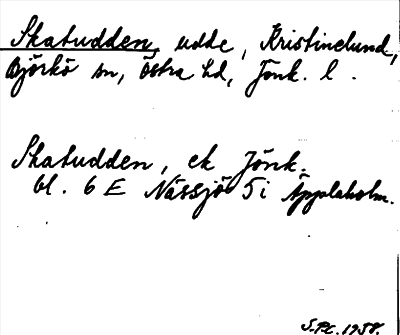 Skatudden, udde, Kristinelund,
Björkö sn, Östra hd, Jönk. l.
Skatudden, ek Jönk.
bl. 6 E Nässjö 5i Äpplaholm.
1958.